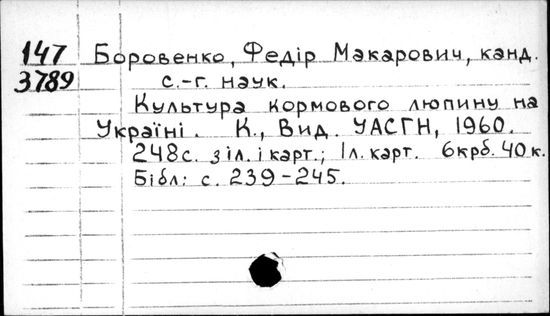 147 Боровенко, Федір Макарович, канд.
3789 с.-г. наук.
Культура кормового люпину на
Україні. К., Вид. УАСГН, 1960.
248с. з іл. і карт.; 1л. карт. 6крб. 40к.
Бібл: с. 239-245.